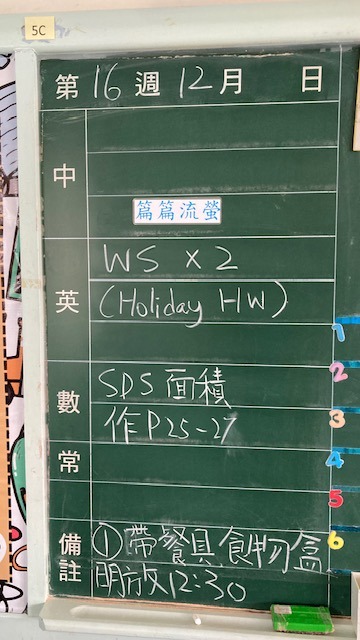 5C
第16週12月 日
中
篇篇流螢
英
WS × 2
(Holiday HW)
數
SDS 面積
作P25-27
常
備註
①帶餐具食物盒
明放12:30
1
2
3
4
5
6